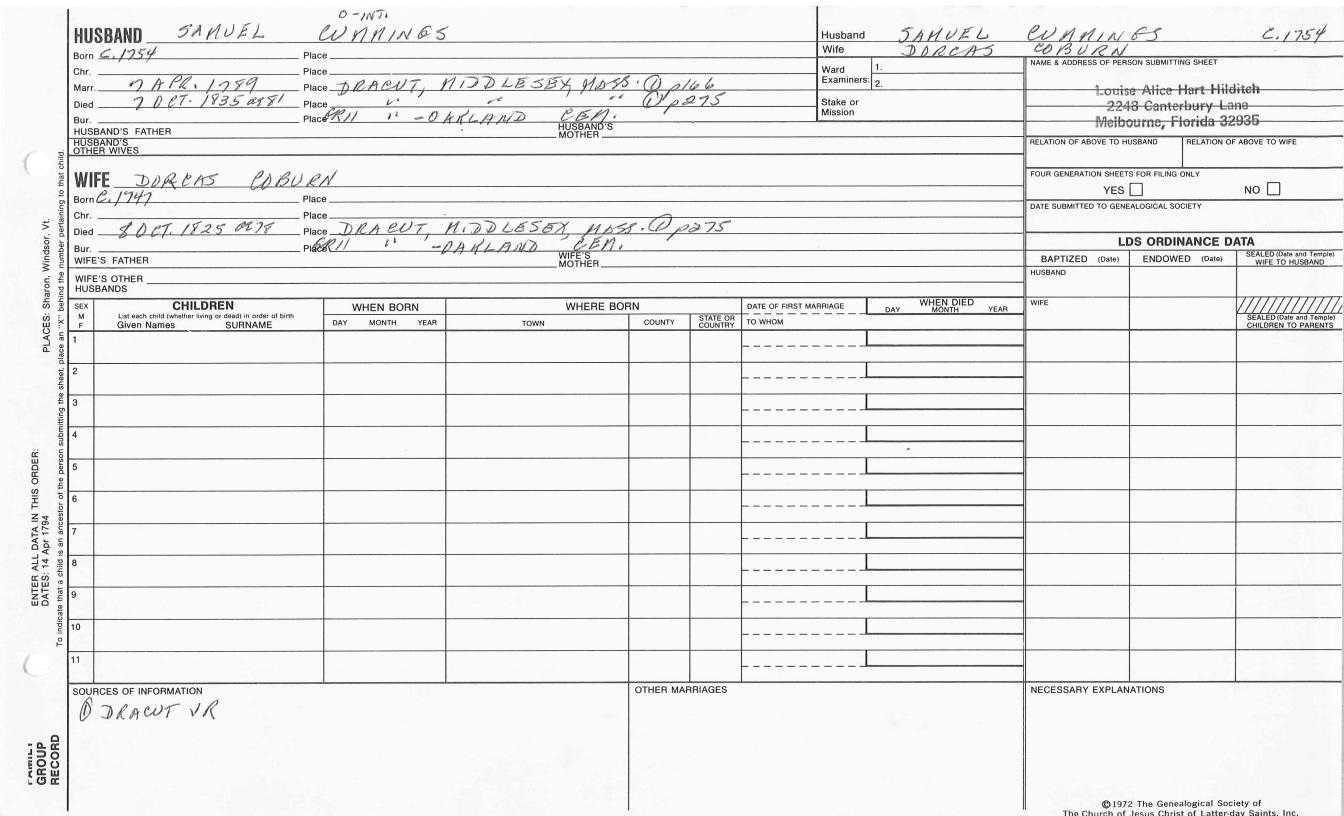 O-INT.
HUSBAND SAMUEL CUMMINGS
Born C.1754 Place
Chr. Place
Marr. 7 APR. 1789 Place DRACUT, MIDDLESEX, MASS. ① p166
Died 7 OCT. 1835 æ 81 Place " " " ① p275
Bur. Place GR11 " -OAKLAND CEM.
HUSBAND'S FATHER HUSBAND'S MOTHER
HUSBAND'S OTHER WIVES
Husband SAMUEL CUMMINGS C.1754
Wife DORCAS COBURN
Ward Examiners: 1.
2.
Stake or Mission
NAME & ADDRESS OF PERSON SUBMITTING SHEET
Louise Alice Hart Hilditch
2248 Canterbury Lane
Melbourne, Florida 32935
RELATION OF ABOVE TO HUSBAND RELATION OF ABOVE TO WIFE
FOUR GENERATION SHEETS FOR FILING ONLY
YES NO
DATE SUBMITTED TO GENEALOGICAL SOCIETY
WIFE DORCAS COBURN
Born C.1747 Place
Chr. Place
Died 8 OCT. 1825 æ 78 Place DRACUT, MIDDLESEX, MASS. ① p275
Bur. Place GR11 " -OAKLAND CEM.
WIFE'S FATHER WIFE'S MOTHER
WIFE'S OTHER HUSBANDS
LDS ORDINANCE DATA
BAPTIZED (Date) ENDOWED (Date) SEALED (Date and Temple) WIFE TO HUSBAND
HUSBAND
WIFE
SEALED (Date and Temple) CHILDREN TO PARENTS
SEX M F
CHILDREN
List each child (whether living or dead) in order of birth
Given Names SURNAME
WHEN BORN
DAY MONTH YEAR
WHERE BORN
TOWN COUNTY STATE OR COUNTRY
DATE OF FIRST MARRIAGE
TO WHOM
WHEN DIED
DAY MONTH YEAR
1
2
3
4
5
6
7
8
9
10
11
SOURCES OF INFORMATION
① DRACUT VR
OTHER MARRIAGES
NECESSARY EXPLANATIONS
©1972 The Genealogical Society of
The Church of Jesus Christ of Latter-day Saints, Inc.
PLACES: Sharon, Windsor, Vt.
ENTER ALL DATA IN THIS ORDER:
DATES: 14 Apr 1794
To indicate that a child is an ancestor of the person submitting the sheet, place an "X" behind the number pertaining to that child.
FAMILY
GROUP
RECORD